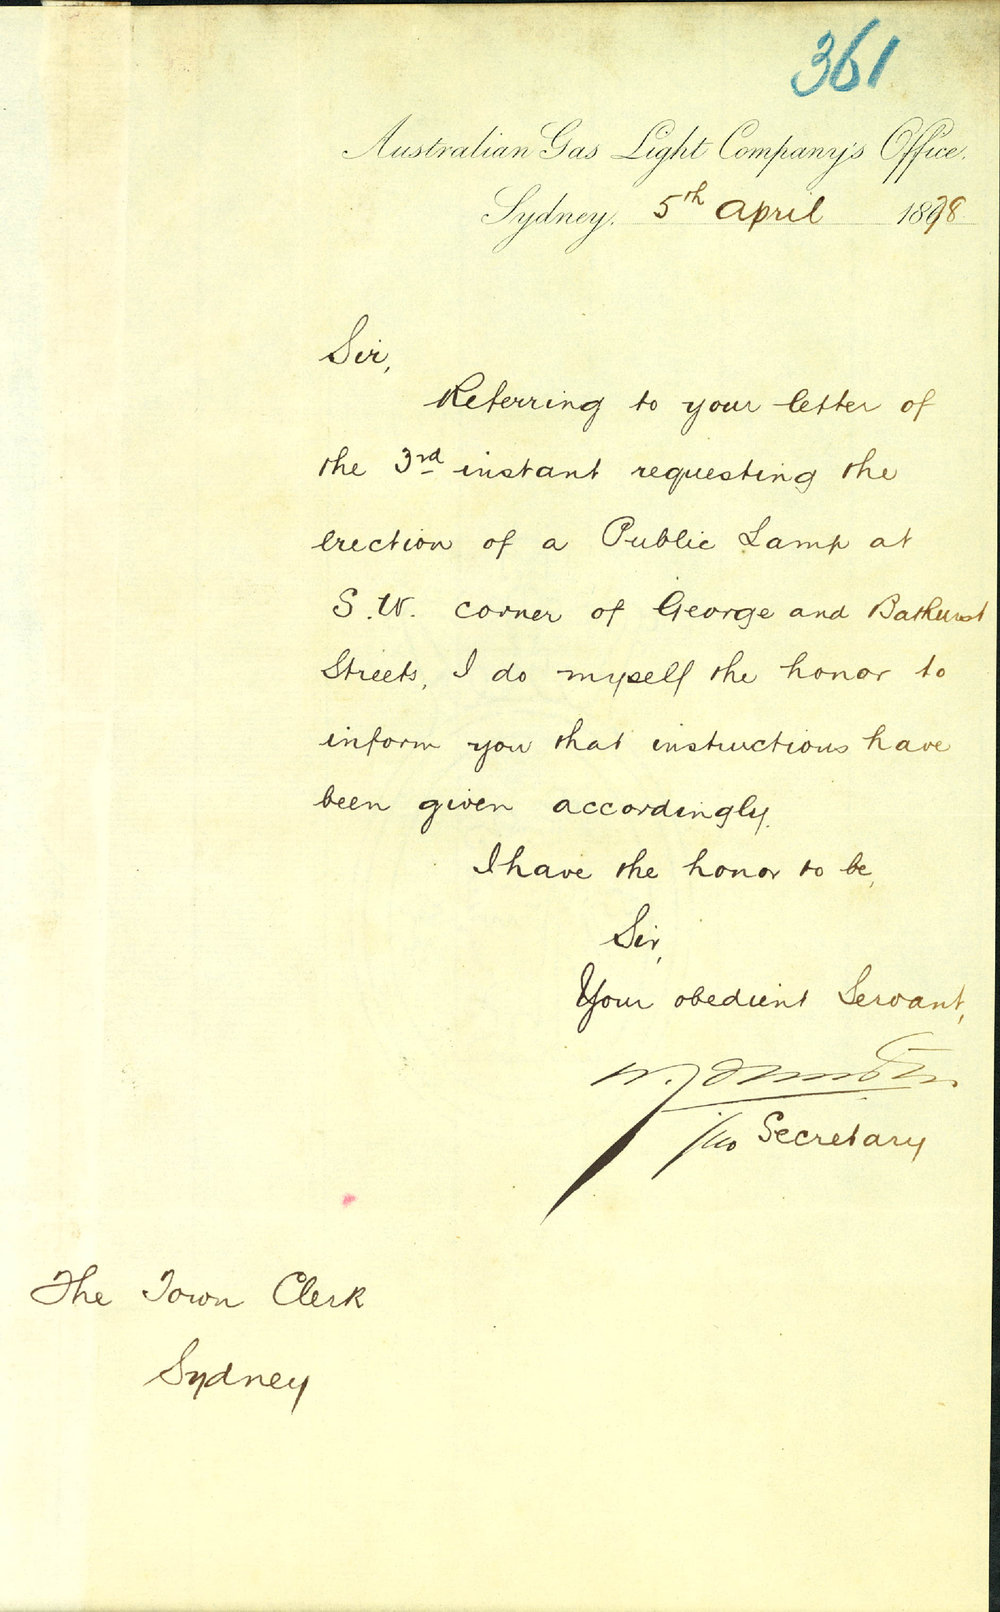 361
Australian Gas Light Company's Office.
Sydney. 5th April 1878
Sir,
Referring to your letter of
the 3rd instant requesting the
erection of a Public Lamp at
S.W. corner of George and Bathurst
Streets, I do myself the honor to
inform you that instructions have
been given accordingly.
I have the honor to be,
Sir,
Your obedient Servant,
pro Secretary
The Town Clerk
Sydney